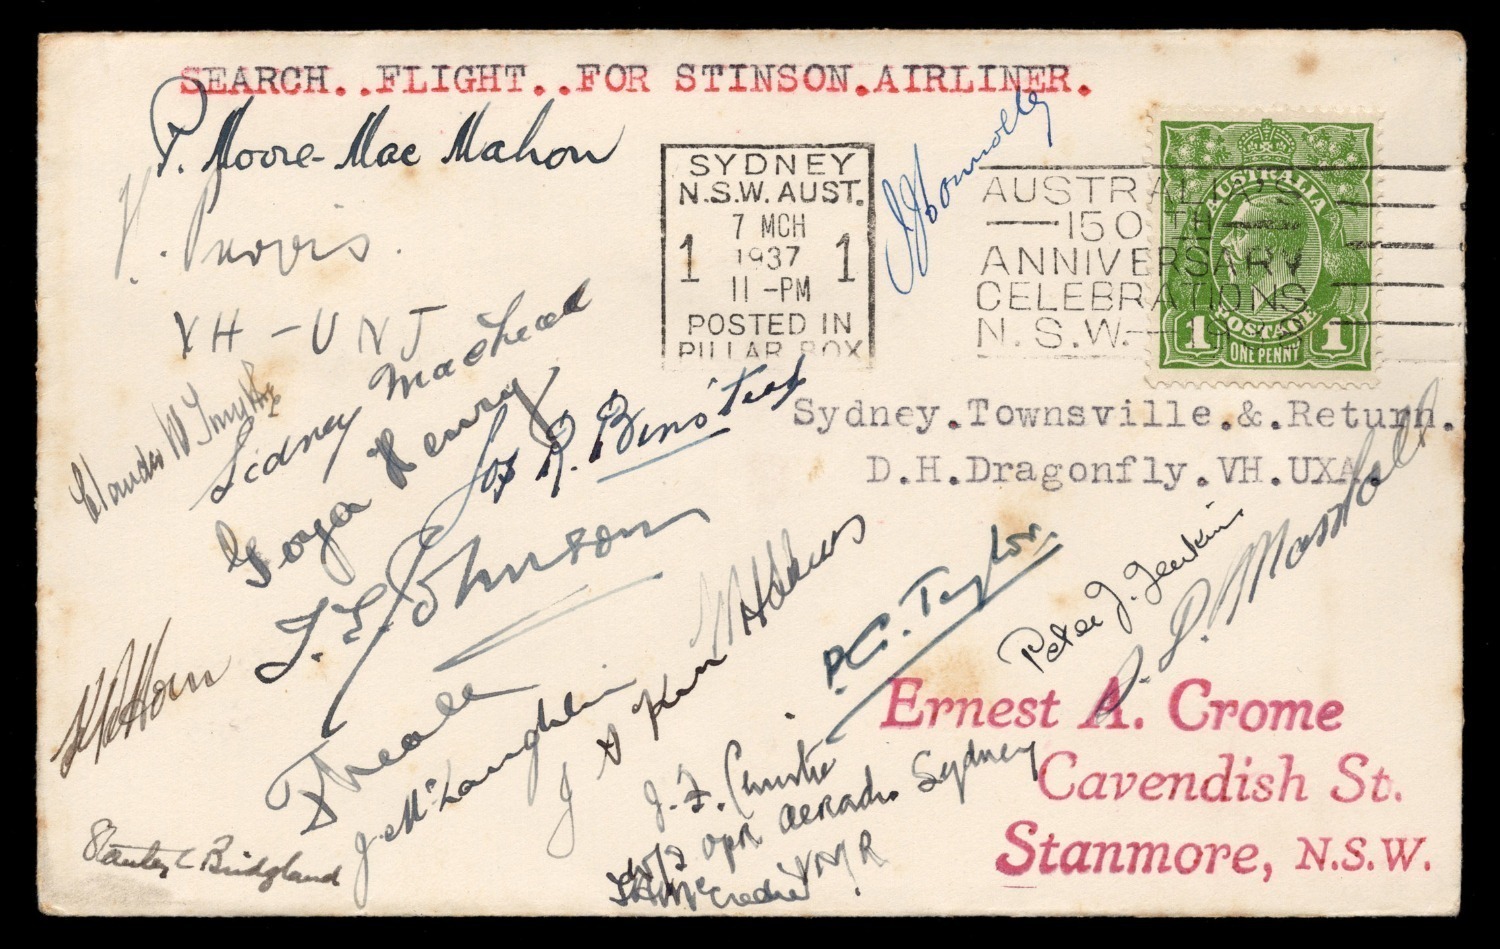 SEARCH..FLIGHT..FOR STINSON.AIRLINER.
P. Moore-Mac Mahon
Purvis.
VH-UNJ
SYDNEY
N.S.W. AUST.
7 MCH
1 1937 1
11-PM
POSTED IN
PILLAR BOX
Connolly
AUSTRALIA'S
150TH
ANNIVERSARY
CELEBRATIONS
N.S.W.
AUSTRALIA
POSTAGE
1 ONE PENNY 1
Sydney.Townsville.&.Return.
D.H.Dragonfly.VH.UXA.
Claude W
Sidney Machead
Goya Henry
R. Binstead
T. E. Johnson
Horn
J. McLaughlin
J
P.G. Taylor.
Peter J. Jenkins
Marshall
J. F. Christie
W/T opr Aeradio Sydney
VMR
McCredie
Stanley C Bridgland
Ernest A. Crome
Cavendish St.
Stanmore, N.S.W.